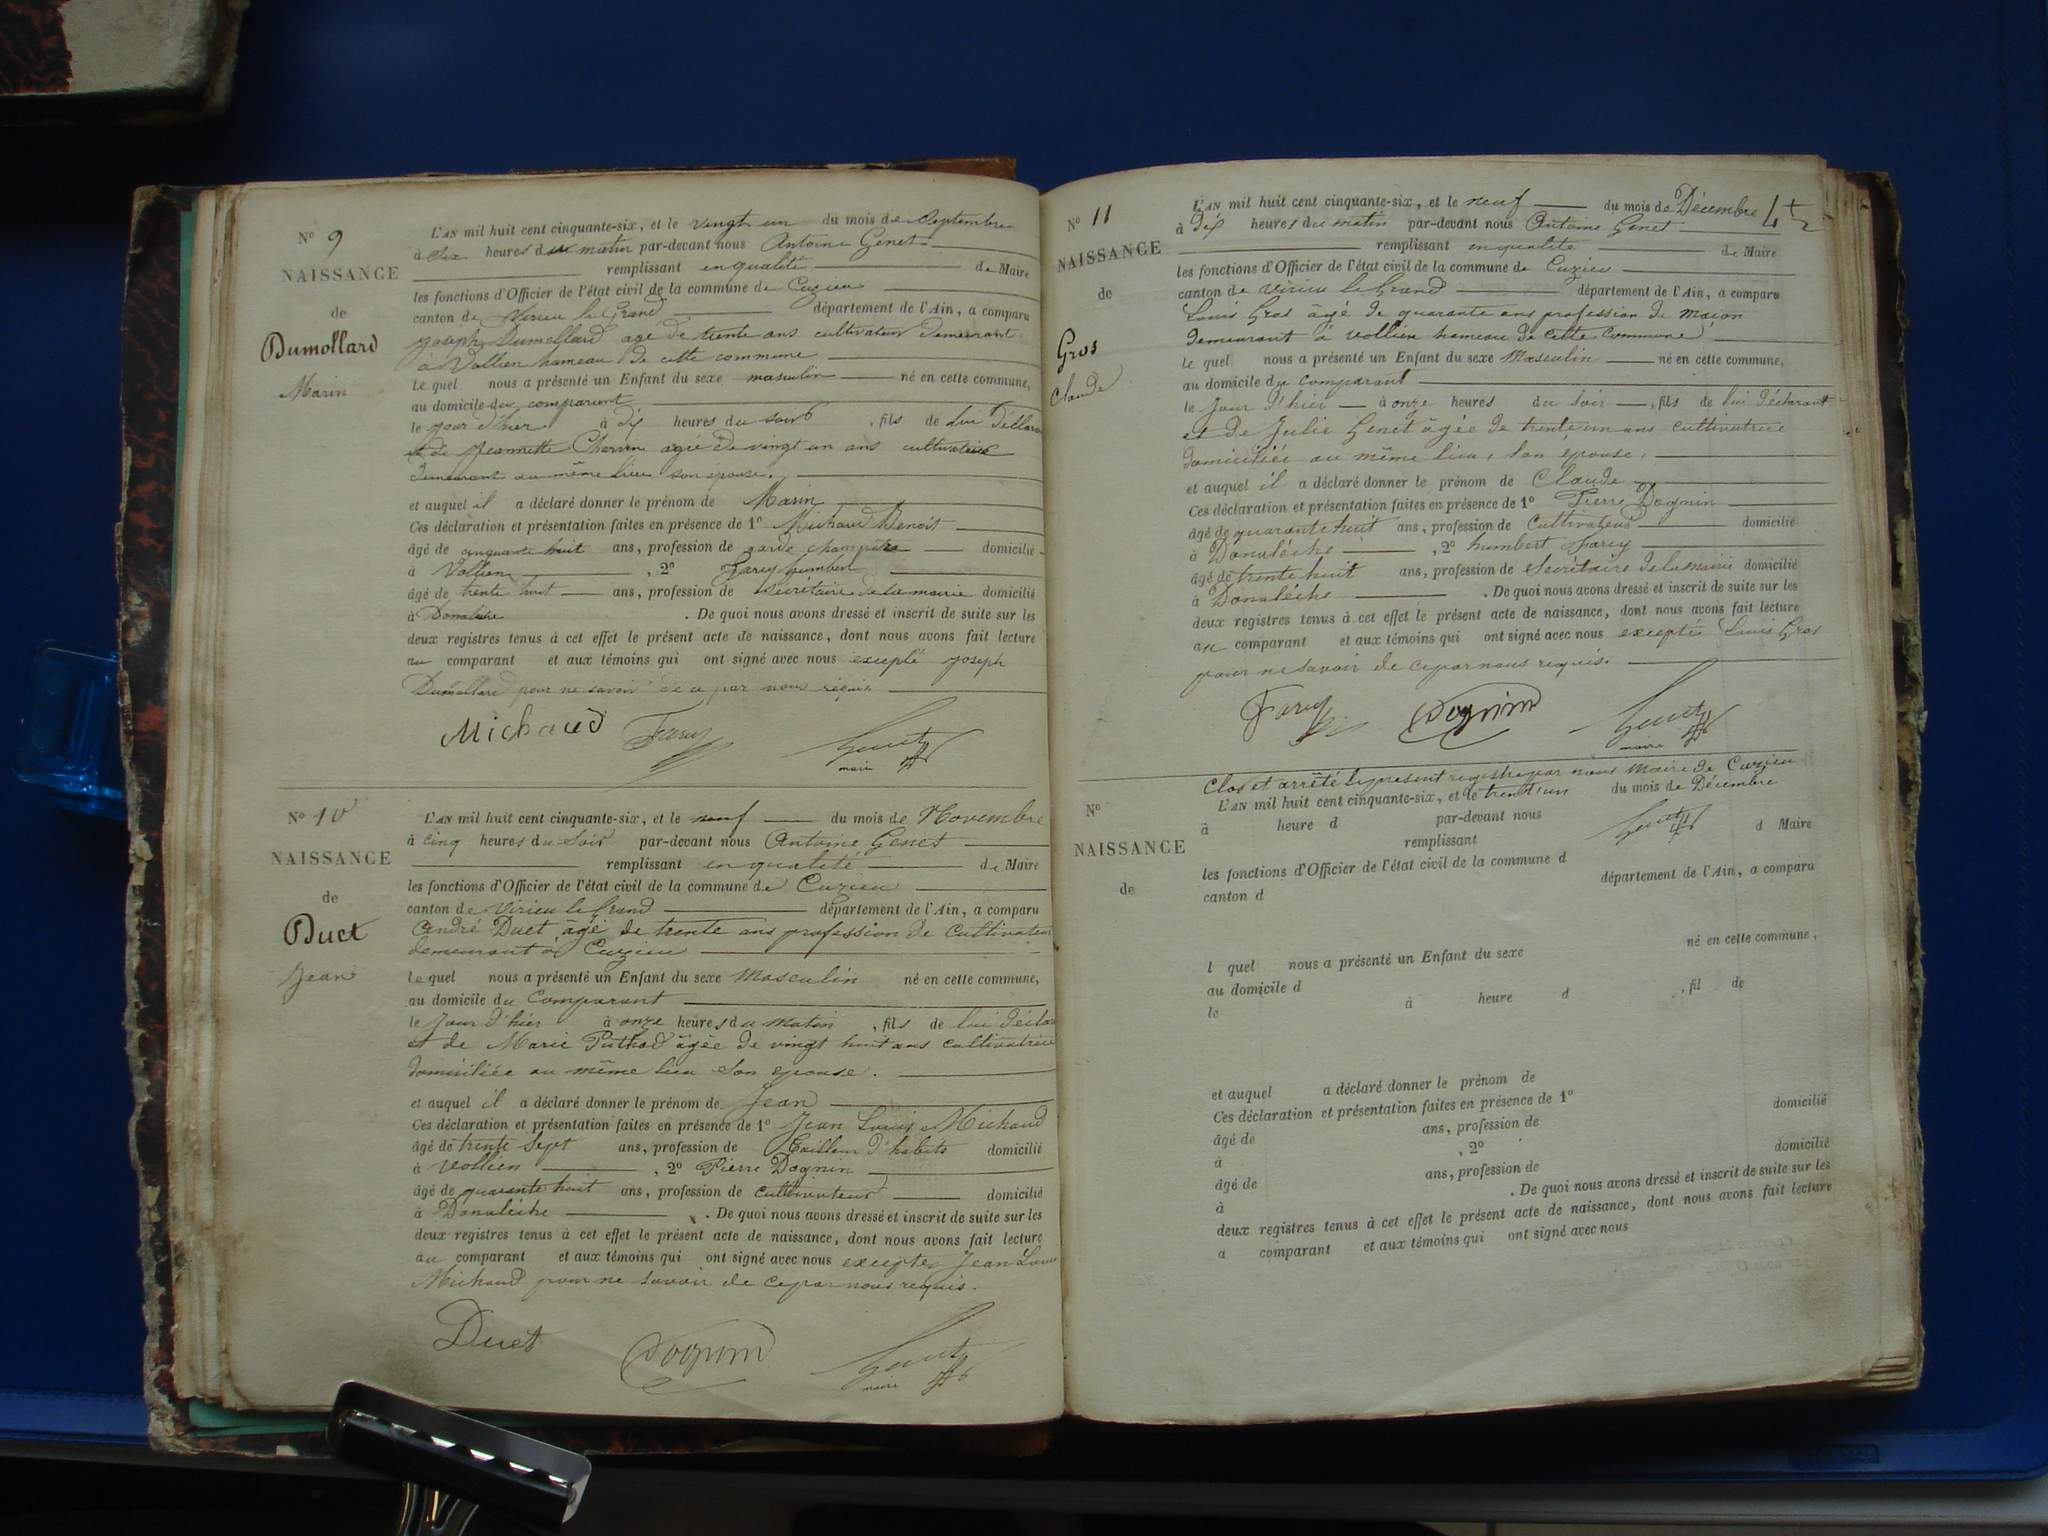 N° 9
NAISSANCE
de
Dumollard
Marin
L'AN mil huit cent cinquante-six, et le vingt un du mois de Septembre
à six heures du matin par-devant nous Antoine Genet
remplissant en qualité de Maire
les fonctions d'Officier de l'état civil de la commune de Cuzieu
canton de Virieu le Grand département de l'Ain, a comparu
Joseph Dumollard agé de trente ans cultivateur demeurant
à Vollien hameau de cette commune
le quel nous a présenté un Enfant du sexe masculin né en cette commune,
au domicile du comparant
le jour d'hier à dix heures du soir, fils de lui déclarant
et de Jeannette agée de vingt un ans cultivatrice
demeurant au même lieu son épouse,
et auquel il a déclaré donner le prénom de Marin
Ces déclaration et présentation faites en présence de 1° Michaud Benoit
âgé de cinquante huit ans, profession de garde champêtre domicilié
à Vollien, 2° Farcy humbert
âgé de trente huit ans, profession de Secrétaire de la mairie domicilié
à Donalèche. De quoi nous avons dressé et inscrit de suite sur les
deux registres tenus à cet effet le présent acte de naissance, dont nous avons fait lecture
au comparant et aux témoins qui ont signé avec nous excepté Joseph
Dumollard pour ne savoir de ce par nous requis
Michaud Farcy Genet
maire
N° 10
NAISSANCE
de
Duet
Jean
L'AN mil huit cent cinquante-six, et le neuf du mois de Novembre
à cinq heures du Soir par-devant nous Antoine Genet
remplissant en qualité de Maire
les fonctions d'Officier de l'état civil de la commune de Cuzieu
canton de Virieu le Grand département de l'Ain, a comparu
André Duet âgé de trente ans profession de Cultivateur
demeurant à Cuzieu
le quel nous a présenté un Enfant du sexe Masculin né en cette commune,
au domicile du Comparant
le Jour d'hier à onze heures du matin, fils de lui déclar
et de Marie Puthod âgée de vingt huit ans cultivatrice
domiciliée au même lieu son epouse.
et auquel il a déclaré donner le prénom de Jean
Ces déclaration et présentation faites en présence de 1° Jean Louis Michaud
âgé de trente Sept ans, profession de Tailleur d'habits domicilié
à Vollien, 2° Pierre Dognin
âgé de quarante huit ans, profession de cultivateur domicilié
à Donalèche. De quoi nous avons dressé et inscrit de suite sur les
deux registres tenus à cet effet le présent acte de naissance, dont nous avons fait lecture
au comparant et aux témoins qui ont signé avec nous excepté Jean Louis
Michaud pour ne savoir de ce par nous requis.
Duet Dognin Genet
maire
N° 11
NAISSANCE
de
Gros
Claude
L'AN mil huit cent cinquante-six, et le neuf du mois de Décembre
à dix heures du matin par-devant nous Antoine Genet
remplissant en qualité de Maire
les fonctions d'Officier de l'état civil de la commune de Cuzieu
canton de Virieu le Grand département de l'Ain, a comparu
Louis Gros âgé de quarante ans profession de maçon
demeurant à Vollien hameau de cette commune
le quel nous a présenté un Enfant du sexe Masculin né en cette commune,
au domicile du comparant
le Jour d'hier à onze heures du soir, fils de lui déclarant
et de Julie Genet âgée de trente un ans cultivatrice
domiciliée au même lieu, son épouse,
et auquel il a déclaré donner le prénom de Claude
Ces déclaration et présentation faites en présence de 1° Pierre Dognin
âgé de quarante huit ans, profession de Cultivateur domicilié
à Donalèche, 2° humbert Farcy
âgé de trente huit ans, profession de Secrétaire de la mairie domicilié
à Donalèche. De quoi nous avons dressé et inscrit de suite sur les
deux registres tenus à cet effet le présent acte de naissance, dont nous avons fait lecture
au comparant et aux témoins qui ont signé avec nous excepté Louis Gros
pour ne savoir de ce par nous requis.
Farcy Dognin Genet
maire
Clos et arrêté le présent registre par nous Maire de Cuzieu
N°
NAISSANCE
de
L'AN mil huit cent cinquante-six, et le trent'un du mois de Décembre
à heure d par-devant nous Genet
remplissant d Maire
les fonctions d'Officier de l'état civil de la commune d
canton d département de l'Ain, a comparu
l quel nous a présenté un Enfant du sexe né en cette commune,
au domicile d
le à heure d , fil de
et auquel a déclaré donner le prénom de
Ces déclaration et présentation faites en présence de 1°
âgé de ans, profession de domicilié
à , 2°
âgé de ans, profession de domicilié
à . De quoi nous avons dressé et inscrit de suite sur les
deux registres tenus à cet effet le présent acte de naissance, dont nous avons fait lecture
a comparant et aux témoins qui ont signé avec nous